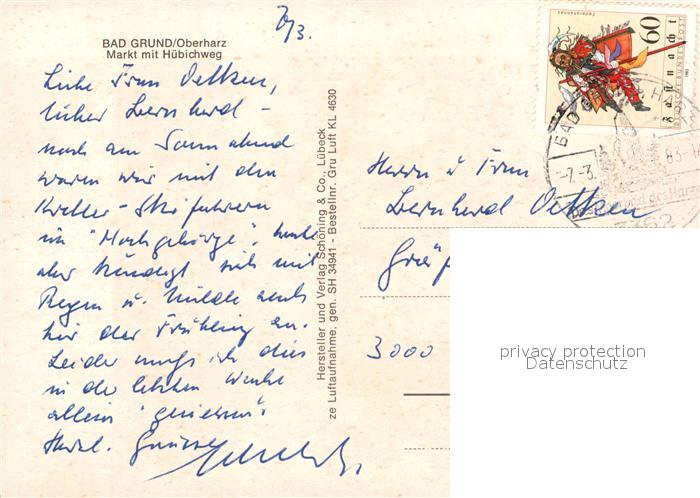 7/3.
BAD GRUND/Oberharz
Markt mit Hübichweg
Liebe Frau Oetken,
lieber Bernhard –
noch am Sonnabend
waren wir mit den
Skifahrern
im "Hochgebirge", heute
aber kündigt sich mit
Regen u. Milde auch
hier der Frühling an.
Leider muß ich dies
in der letzten Woche
allein "geniessen".
Herzl. Grüsse
Hersteller und Verlag Schöning & Co., Lübeck
ze Luftaufnahme, gen. SH 34941 - Bestellnr. Gru Luft KL 4630
60
Fastnacht
DEUTSCHE BUNDESPOST
BAD GRUND HARZ
-7.-3. 83-1
3362
Herrn u Frau
Bernhard Oetken
3000
privacy protection
Datenschutz